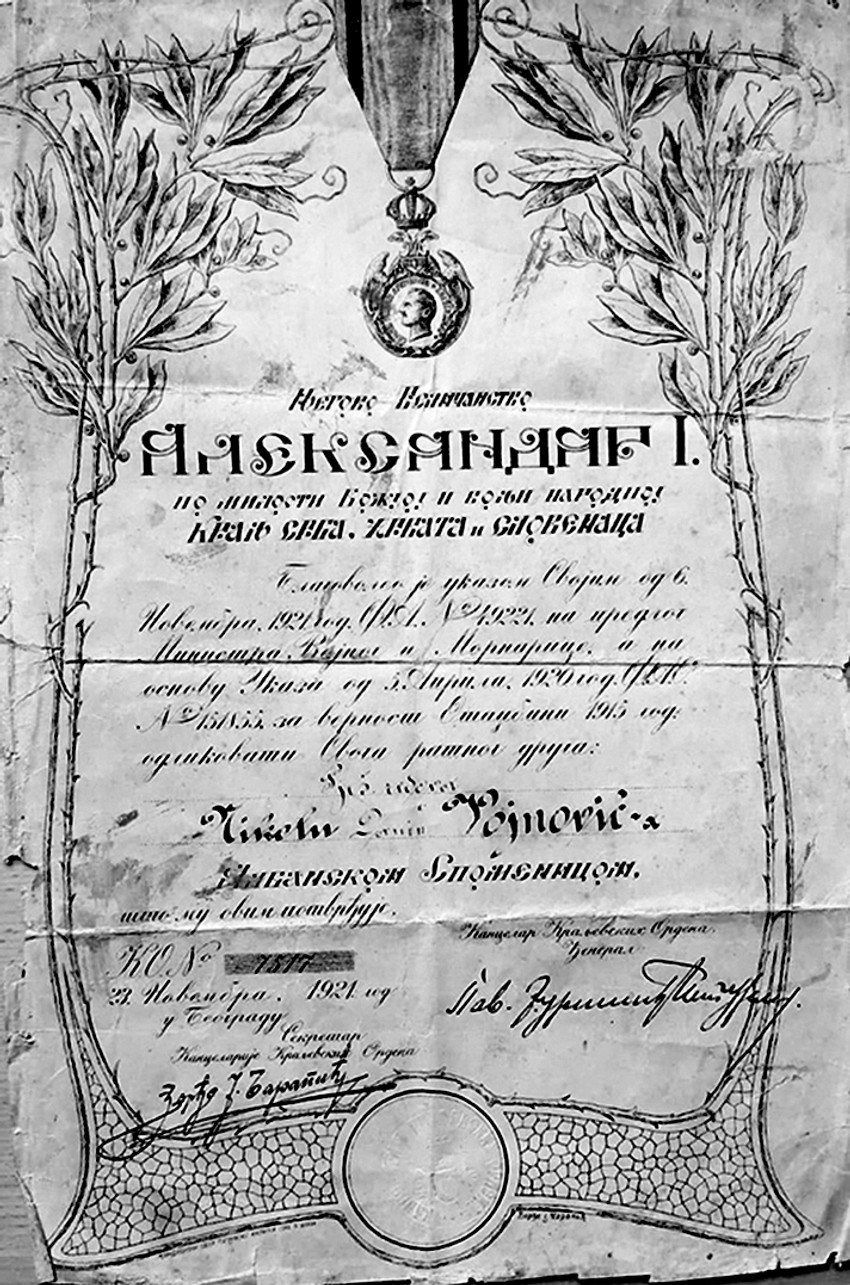 Његово Величанство
АЛЕКСАНДАР I.
по милости Божјој и вољи народној
Краљ Срба, Хрвата и Словенаца
Благоволео је указом Својим од 6.
Новембра, 1921 год. Ф.А. № 49221, на предлог
Министра Војног и Морнарице, а на
основу Указа од 5. Априла, 1920 год.
№ за верност Отаџбини 1915 год.
одликовати Свога ратног друга:
Nikolu Vojnović-a
Албанском Споменицом,
што му овим потврђује.
Канцелар Краљевских Ордена,
Ђенерал
КО № 7517
23. Новембра, 1921. год
у Београду
Секретар
Канцеларије Краљевских Ордена